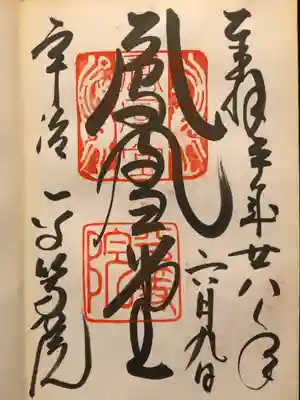 奉拝平成廿八年
六月九日
鳳凰堂
宇治 平等院